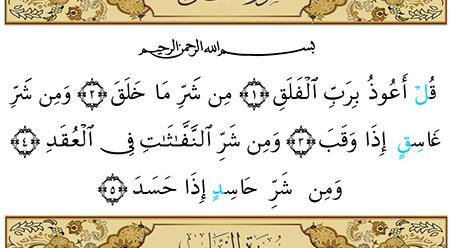 بسم الله الرحمن الرحيم
قُلْ أَعُوذُ بِرَبِّ ٱلْفَلَقِ ﴿١﴾ مِن شَرِّ مَا خَلَقَ ﴿٢﴾ وَمِن شَرِّ
غَاسِقٍ إِذَا وَقَبَ ﴿٣﴾ وَمِن شَرِّ ٱلنَّفَّـٰثَـٰتِ فِى ٱلْعُقَدِ ﴿٤﴾
وَمِن شَرِّ حَاسِدٍ إِذَا حَسَدَ ﴿٥﴾